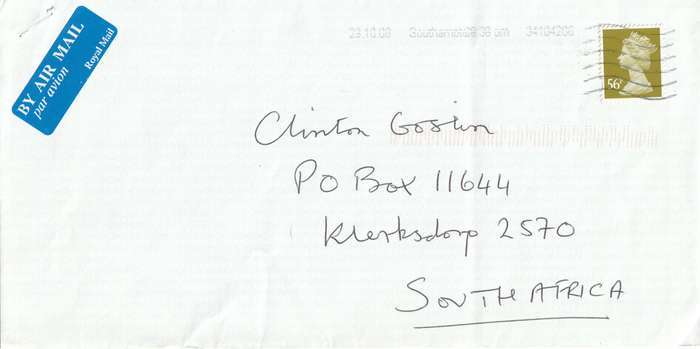 BY AIR MAIL
par avion
Royal Mail
23.10.08 34104200
56p
Clinton Goslin
PO Box 11644
Klerksdorp 2570
SOUTH AFRICA